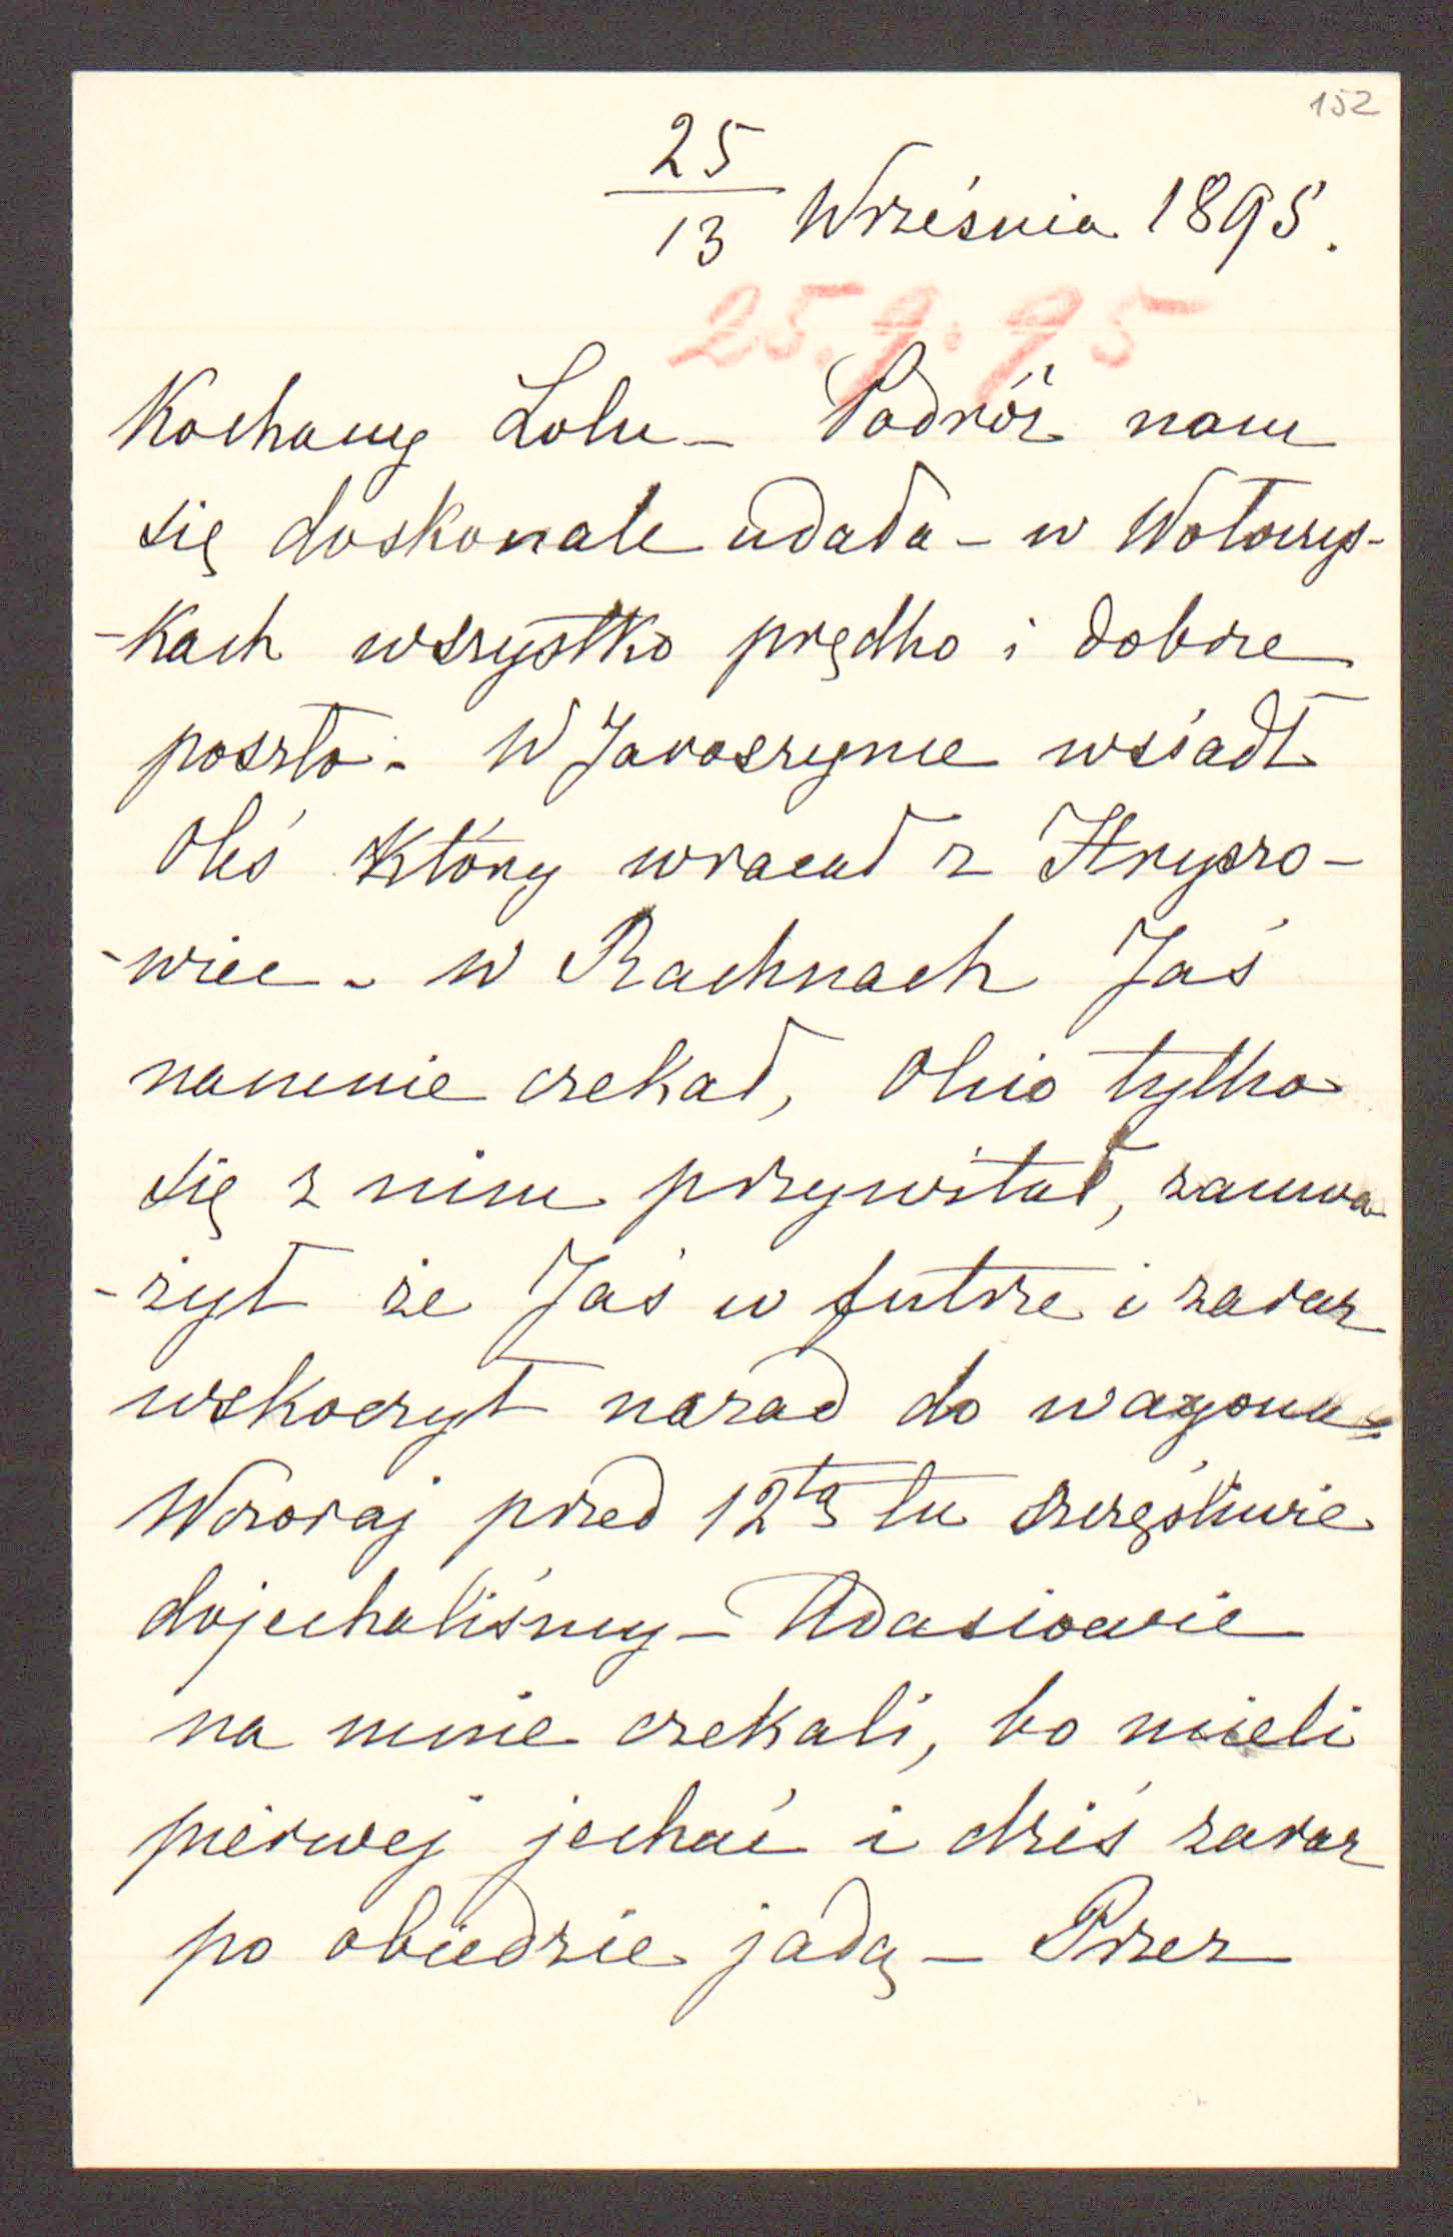 152
25
13 Września 1895.
25.9.95
Kochany Lolu – Podróż nam
się doskonale udała – w Wołoczys-
-kach wszystko prędko i dobrze
poszło – W Jaroszynie wsiadł
Oleś który wracał z Hryszo-
-wiec – w Rachnach Jaś
na mnie czekał, Oleś tylko
się z nim przywitał, zauwa
-żył że Jaś w futrze i zaraz
wskoczył nazad do wagonu –
Wczoraj przed 12tą tu szczęśliwie
dojechaliśmy – Adasiowie
na mnie czekali, bo mieli
pierwej jechać i dziś zaraz
po obiedzie jadą – Przez